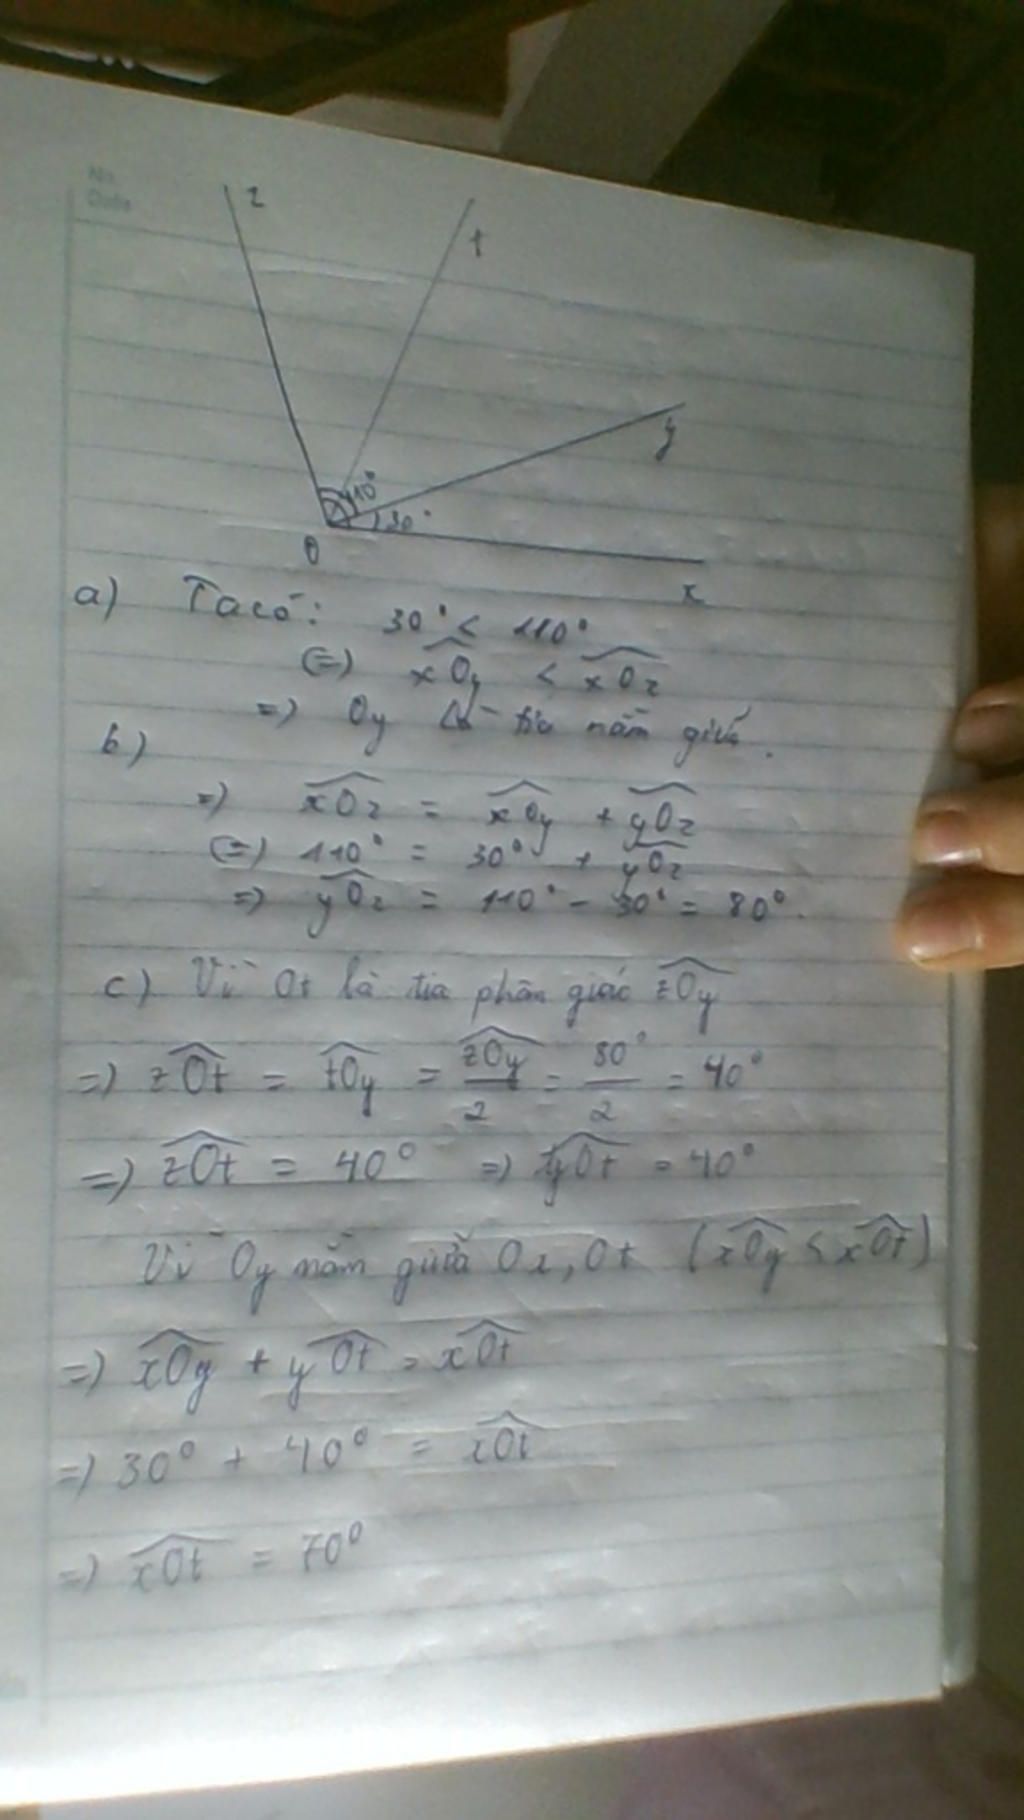 No.
Date
z
t
y
110°
30°
O
x
a) Ta có: 30° < 110°
(=) xOy < xOz
=) Oy là tia nằm giữa.
b)
=) xOz = xOy + yOz
(=) 110° = 30° + yOz
=) yOz = 110° - 30° = 80°.
c) Vì Ot là tia phân giác zOy
=) zOt = tOy = zOy/2 = 80°/2 = 40°
=) zOt = 40° =) yOt = 40°
Vì Oy nằm giữa Ox, Ot (xOy < xOt)
=) xOy + yOt = xOt
=) 30° + 40° = xOt
=) xOt = 70°